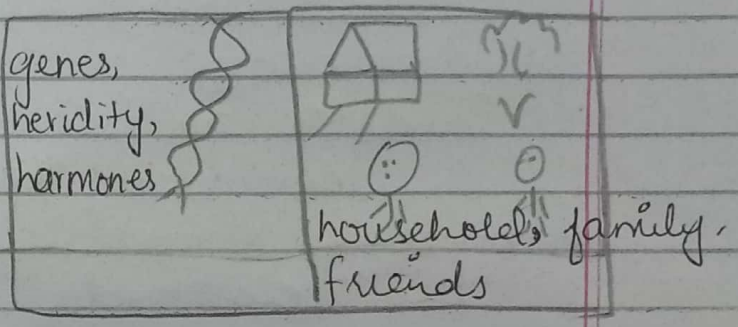 genes,
heridity,
harmones
household, family,
friends